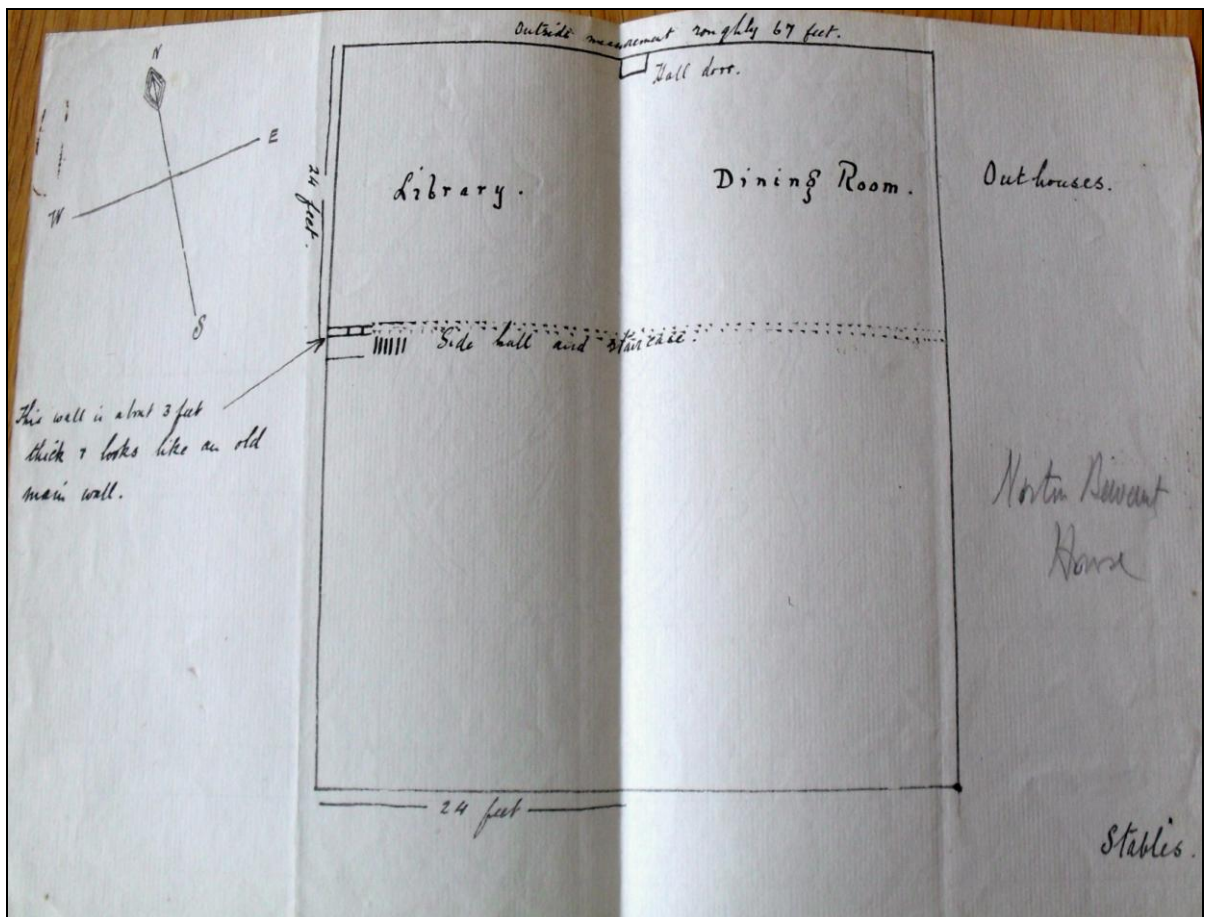 Outside measurement roughly 67 feet.
Hall door.
N
E
W
S
24 feet.
Library.
Dining Room.
Outhouses.
Side hall and staircase.
This wall is about 3 feet
thick & looks like an old
main wall.
North
House
24 feet
Stables.